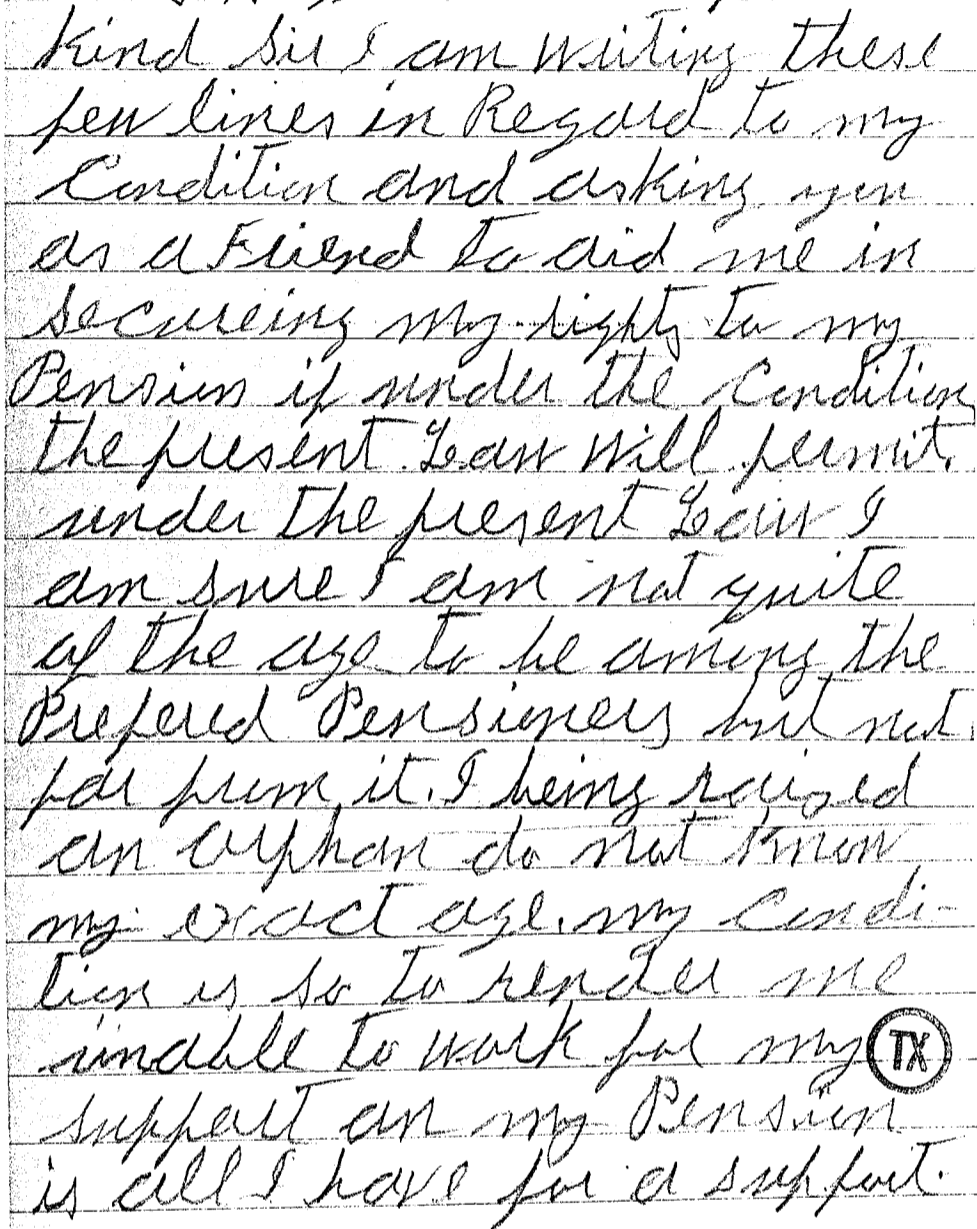 Kind Sir I am writing these
few lines in Regard to my
Condition and asking you
as a Friend to aid me in
secureing my rights to my
Pension if under the Condition
the present Law will permit.
under the present Law I
am sure I am not quite
of the age to be among the
Prefered Pensioners but not
far from it. I being raised
an Orphan do not know
my exact age. my condi-
tion is so to render me
unable to work for my
TX
support an my Pension
is all I have for a support.